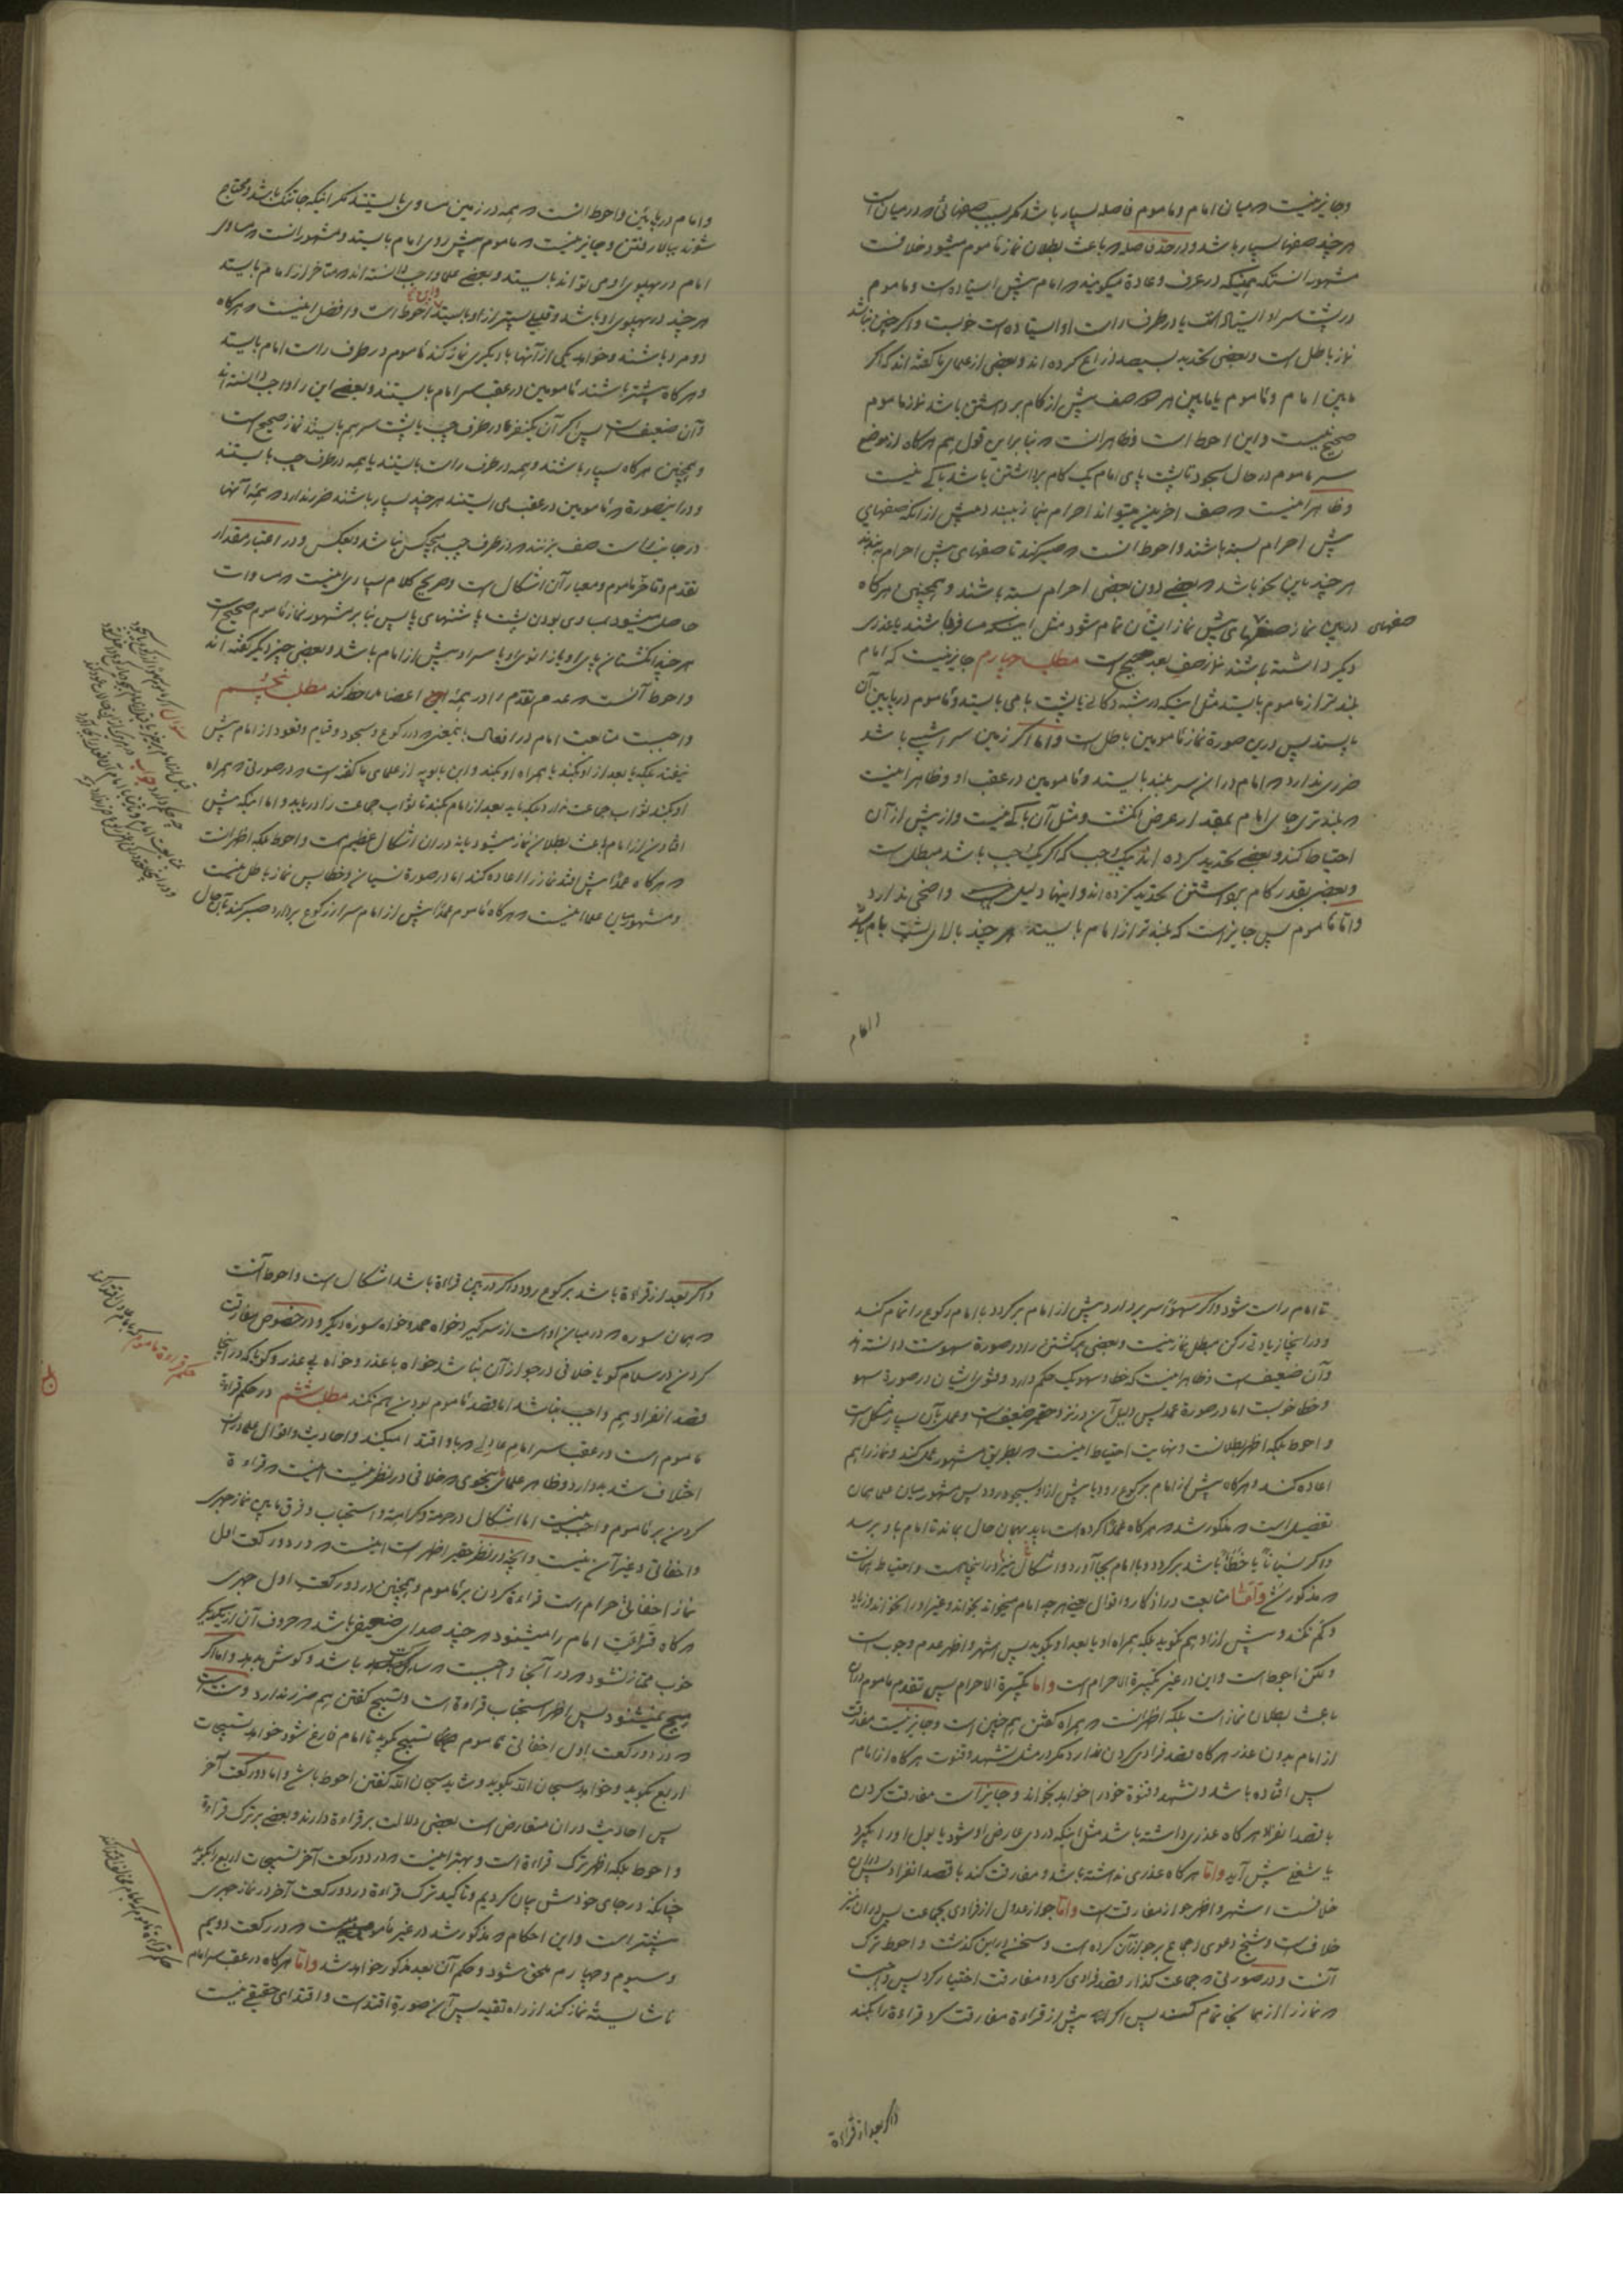 وجایز نیست که میان امام و ماموم فاصله بسیار باشد مگر بسبب صفهائی که در میان است
هر چند صفها بسیار باشد و در حد فاصله که باعث بطلان نماز ماموم میشود خلافست
مشهور انستکه همینکه در عرف و عادة میگویند که امام پیش ایستاده است و ماموم
در پشت سر او ایستاده است یا در طرف راست او ایستاده است خوبست و اگر چنین نباشد
نماز باطل است و بعضی تحدید بسیصد ذراع کرده اند و بعضی از علمای ما گفته اند که اگر
مابین امام و ماموم یا مابین هر دو صف بیش از گام برداشتن باشد نماز ماموم
صحیح نیست و این احوط است و ظاهر انست که بنا بر این قول هم هرگاه از موضع
سر ماموم در حال سجود تا پشت پای امام یک گام برداشتن باشد باکی نیست
و ظاهر اینست که صف اخرین میتواند احرام بنماز ببندد پیش از انکه صفهای
پیش احرام بسته باشند و احوط انست که صبر کند تا صفهای پیش احرام به بندند
هر چند باین نحو باشد که بعضی دون بعضی احرام بسته باشند و همچنین هرگاه
در بین نماز صفهای پیش نماز ایشان تمام شود مثل اینکه مسافر باشند یا عذری
صفهای
دیگر داشته باشند نماز صف بعد صحیح است مطلب چهارم جایز نیست که امام
بلند تر از ماموم بایستد مثل اینکه در پشته دکانی یا پشت بامی بایستد و ماموم در پایین آن
بایستد پس درین صورة نماز مامومین باطل است و اما اگر زمین سراشیب باشد
ضرری ندارد که امام در ان سر بلند بایستد و مامومین در عقب او و ظاهر اینست
که بلندتری جای امام بمقدار عرض انگشت و مثل آن باکی نیست و از بیش از آن
احتیاط کند و بعضی تحدید کرده اند بیک وجب که اگر یک وجب باشد مبطل است
و بعضی بقدر گام برداشتن تحدید کرده اند و اینها دلیل واضحی ندارد
و اما ماموم پس جایز است که بلندتر از امام بایستد هر چند بالای پشت بام باشد
و امام
و امام در پایین و احوط انست که همه در زمین مساوی بایستند مگر اینکه جا تنگ باشد و محتاج
شوند ببالا رفتن و جایز نیست که ماموم پیش روی امام بایستد و مشهور انست که مساوی
امام در پهلوی او می تواند بایستد و بعضی علما واجب دانسته اند که متاخر از امام بایستد
هر چند در پهلوی او باشد و قلیلی پستر از او بایستد و این احوط است و افضل اینست که هرگاه
دو مرد باشند و خواهد یکی از آنها با دیگری نماز کند ماموم در طرف راست امام بایستد
و هرگاه بیشتر باشند مامومین در عقب سر امام بایستند و بعضی این را واجب دانسته اند
و آن ضعیف است پس اگر آن یکنفر در طرف چپ یا پشت سر هم بایستد نماز صحیح است
و همچنین هرگاه بسیار باشند و همه در طرف راست بایستند یا همه در طرف چپ بایستند
و در اینصورة که مامومین در عقب می ایستند هر چند بسیار باشند ضرر ندارد که همهٔ آنها
در جانب راست صف بزنند که در طرف چپ هیچکس نباشد و بعکس و در اعتبار مقدار
تقدم و تاخر ماموم و معیار آن اشکال است و صریح کلام بسیاری اینست که مساوات
حاصل میشود بمساوی بودن پشت پاشنهای پا پس بنا بر مشهور نماز ماموم صحیح است
هر چند انگشتان پای او یا زانوی او یا سر او پیش از امام باشد و بعضی چیز دیگر گفته اند
و احوط آنست که عدم تقدم را در همهٔ این اعضا ملاحظه کند مطلب پنجم
واجبست متابعت امام در افعال باینمعنی که در رکوع و سجود و قیام و قعود از امام پیش
نیفتد بلکه یا بعد از او بکند یا همراه او بکند و ابن بابویه از علمای ما گفته است که در صورتی که همراه
او بکند ثواب جماعت ندارد بلکه باید بعد از امام بکند تا ثواب جماعت را دریابد و اما اینکه پیش
افتادن از امام باعث بطلان نماز میشود یا نه در ان اشکال عظیم است و احوط بلکه اظهر انست
که هرگاه عمدا پیش افتد نماز را اعاده کند اما در صورة نسیان و خطا پس نماز باطل نیست
و مشهور میان علما اینست که هرگاه ماموم عمدا پیش از امام سر از رکوع بردارد صبر کند بآن حال
تا امام راست شود و اگر سهوا سر بردارد پیش از امام برگردد با امام رکوع را تمام کند
و در اینجا زیادتی رکن مبطل نماز نیست و بعضی برگشتن را در صورة سهو سنت دانسته اند
و آن ضعیف است و ظاهر اینست که خطا و سهو یک حکم دارد و فتوای ایشان در صورة سهو
و خطا خوبست اما در صورة عمد پس دلیل آن در نزد حقیر ضعیف است و عمل بآن بسیار مشکل است
و احوط بلکه اظهر بطلانست و نهایت احتیاط اینست که بطریق مشهور عمل کند و نماز را هم
اعاده کند و هرگاه پیش از امام برکوع رود یا پیش از او بسجود رود پس مشهور میان علما همان
تفصیل است که مذکور شد که هرگاه عمدا کرده است باید بهمان حال بماند تا امام باو برسد
و اگر نسیانا یا خطأ باشد برگردد و با امام بجا آورد و اشکال نیز در اینجا هست و احتیاط همانست
که مذکور شد و اما متابعت در اذکار و اقوال یعنی هر چه امام میخواند بخواند و غیر او را نخواند و زیاد
و کم نکند و پیش از او هم نگوید بلکه همراه او یا بعد او بگوید پس اشهر و اظهر عدم وجوب است
و لکن احوط است و این در غیر تکبیرة الاحرام است و اما تکبیرة الاحرام پس تقدم ماموم در آن
باعث بطلان نماز است بلکه اظهر انست که همراه گفتن هم چنین است و جایز نیست مفارقت
از امام بدون عذر هرگاه قصد فرادی کردن ندارد مگر در مثل تشهد و قنوت هرگاه از امام
پس افتاده باشد و تشهد و قنوة خود را خواهد بخواند و جایز است مفارقت کردن
با قصد انفراد هرگاه عذری داشته باشد مثل اینکه دردی عارض او شود یا بول او را بگیرد
یا شغلی پیش آید و اما هرگاه عذری نداشته باشد و مفارقت کند با قصد انفراد پس در آن
خلافست اشهر و اظهر جواز مفارقت است و اما جواز عدول از فرادی بجماعت پس در ان نیز
خلاف است و شیخ دعوی اجماع بر جواز آن کرده است و سخن در این گذشت و احوط ترک
آنست و در صورتی که جماعت گذار قصد فرادی کرده مفارقت اختیار کرد پس واجبست
که نماز را از همانجا تمام کند پس اگر پیش از قراءة مفارقت کرد قراءة را بکند
و اگر بعد از قراءة
و اگر بعد از قراءة باشد برکوع رود و اگر در بین قراءة باشد اشکال است و احوط آنست
که همان سوره که در میان او است از سر گیرد خواه حمد و خواه سوره دیگر و در خصوص مفارقت
کردن در سلام گویا خلافی در جواز آن نباشد خواه با عذر و خواه بی عذر و گویا که در اینجا
قصد انفراد هم واجب نباشد اما قصد ماموم بودن هم نکند مطلب ششم در حکم قراءة
ماموم است در عقب سر امام عادلی که باو اقتدا میکند و احادیث و اقوال علما در ان
اختلاف شدید دارد و ظاهر علما بنحوی که خلافی در نظر نیست اینست که قراءة
کردن بر ماموم واجب نیست اما اشکال در حرمة و کراهة و استحباب و فرق مابین نماز جهری
و اخفاتی و غیر آن نیست و آنچه در نظر حقیر اظهر است اینست که در دو رکعت اول
نماز اخفاتی حرام است قراءة کردن بر ماموم و همچنین در دو رکعت اول جهری
هرگاه قراءت امام را میشنود هر چند صدای ضعیفی باشد که حروف آن از یکدیگر
خوب ممتاز نشود که در آنجا واجبست که ساکت باشد و گوش بدهد و اما اگر
هیچ نمیشنود پس اظهر استحباب قراءة است و تسبیح گفتن هم ضرر ندارد و سنت است
که در دو رکعت اول اخفاتی ماموم تسبیح بگوید تا امام فارغ شود خواهد تسبیحات
اربع بگوید و خواهد سبحان الله بگوید و شاید سبحان الله گفتن احوط باشد و اما دو رکعت آخر
پس احادیث در ان متعارض است بعضی دلالت بر قراءة دارند و بعضی بر ترک قراءة
و احوط بلکه اظهر ترک قراءة است و بهتر اینست که در دو رکعت آخر تسبیحات اربع بگوید
چنانکه در جای خودش بیان کردیم و تاکید ترک قراءة در دو رکعت آخر در نماز جهری
بیشتر است و این احکام که مذکور شد در غیر مامومی است که در رکعت دویم
و سیوم و چهارم ملحق شود و حکم آن بعد مذکور خواهد شد و اما هرگاه در عقب سر امام
ناشایسته نماز کند از راه تقیه پس آن صورة اقتداست و اقتدای حقیقی نیست
حکم قراءة ماموم که بامام عادل اقتدا کند
حکم قراءة ماموم که بامام مخالف اقتدا کند